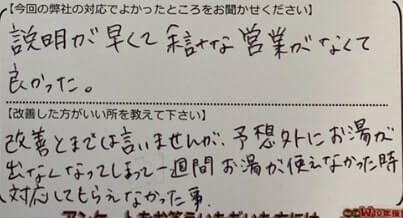 【今回の弊社の対応でよかったところをお聞かせください】
説明が早くて余計な営業がなくて
良かった。
【改善した方がいい所を教えて下さい】
改善とまでは言いませんが、予想外にお湯が
出なくなってしまって一週間お湯が使えなかった時
対応してもらえなかった事.